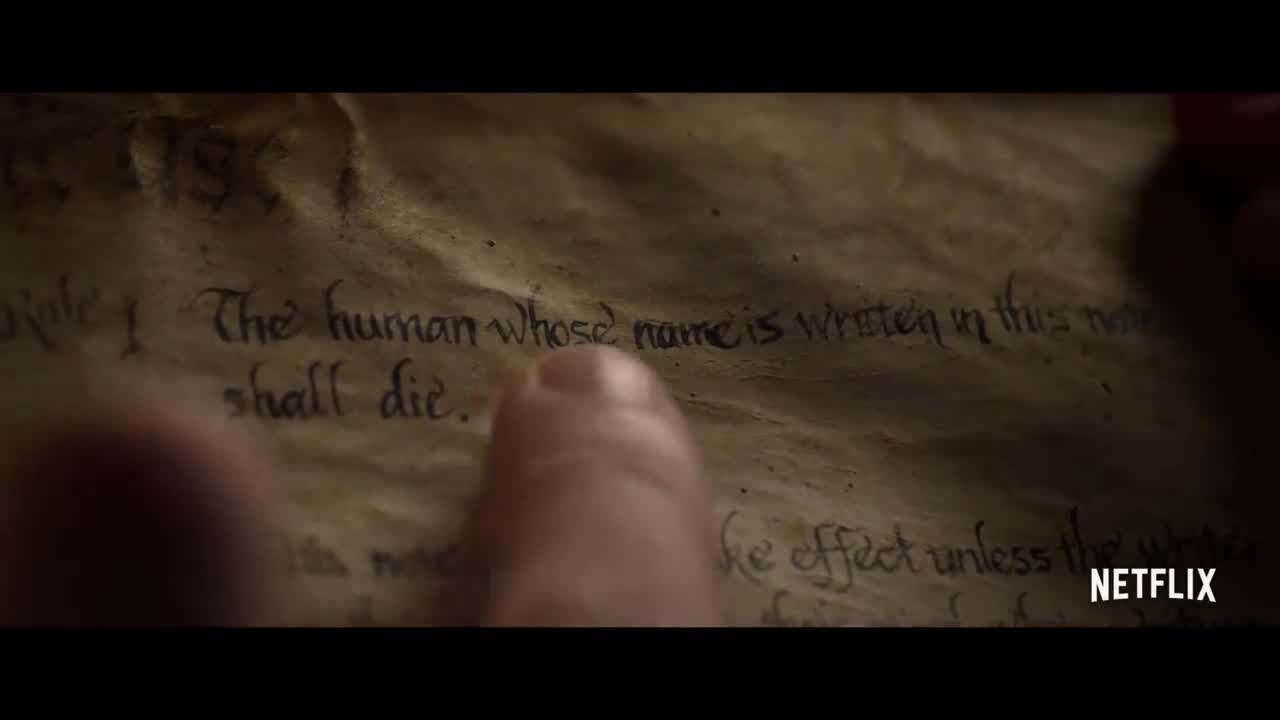 Rule 1 The human whose name is written in this note
shall die.
this note ke effect unless the writer
NETFLIX